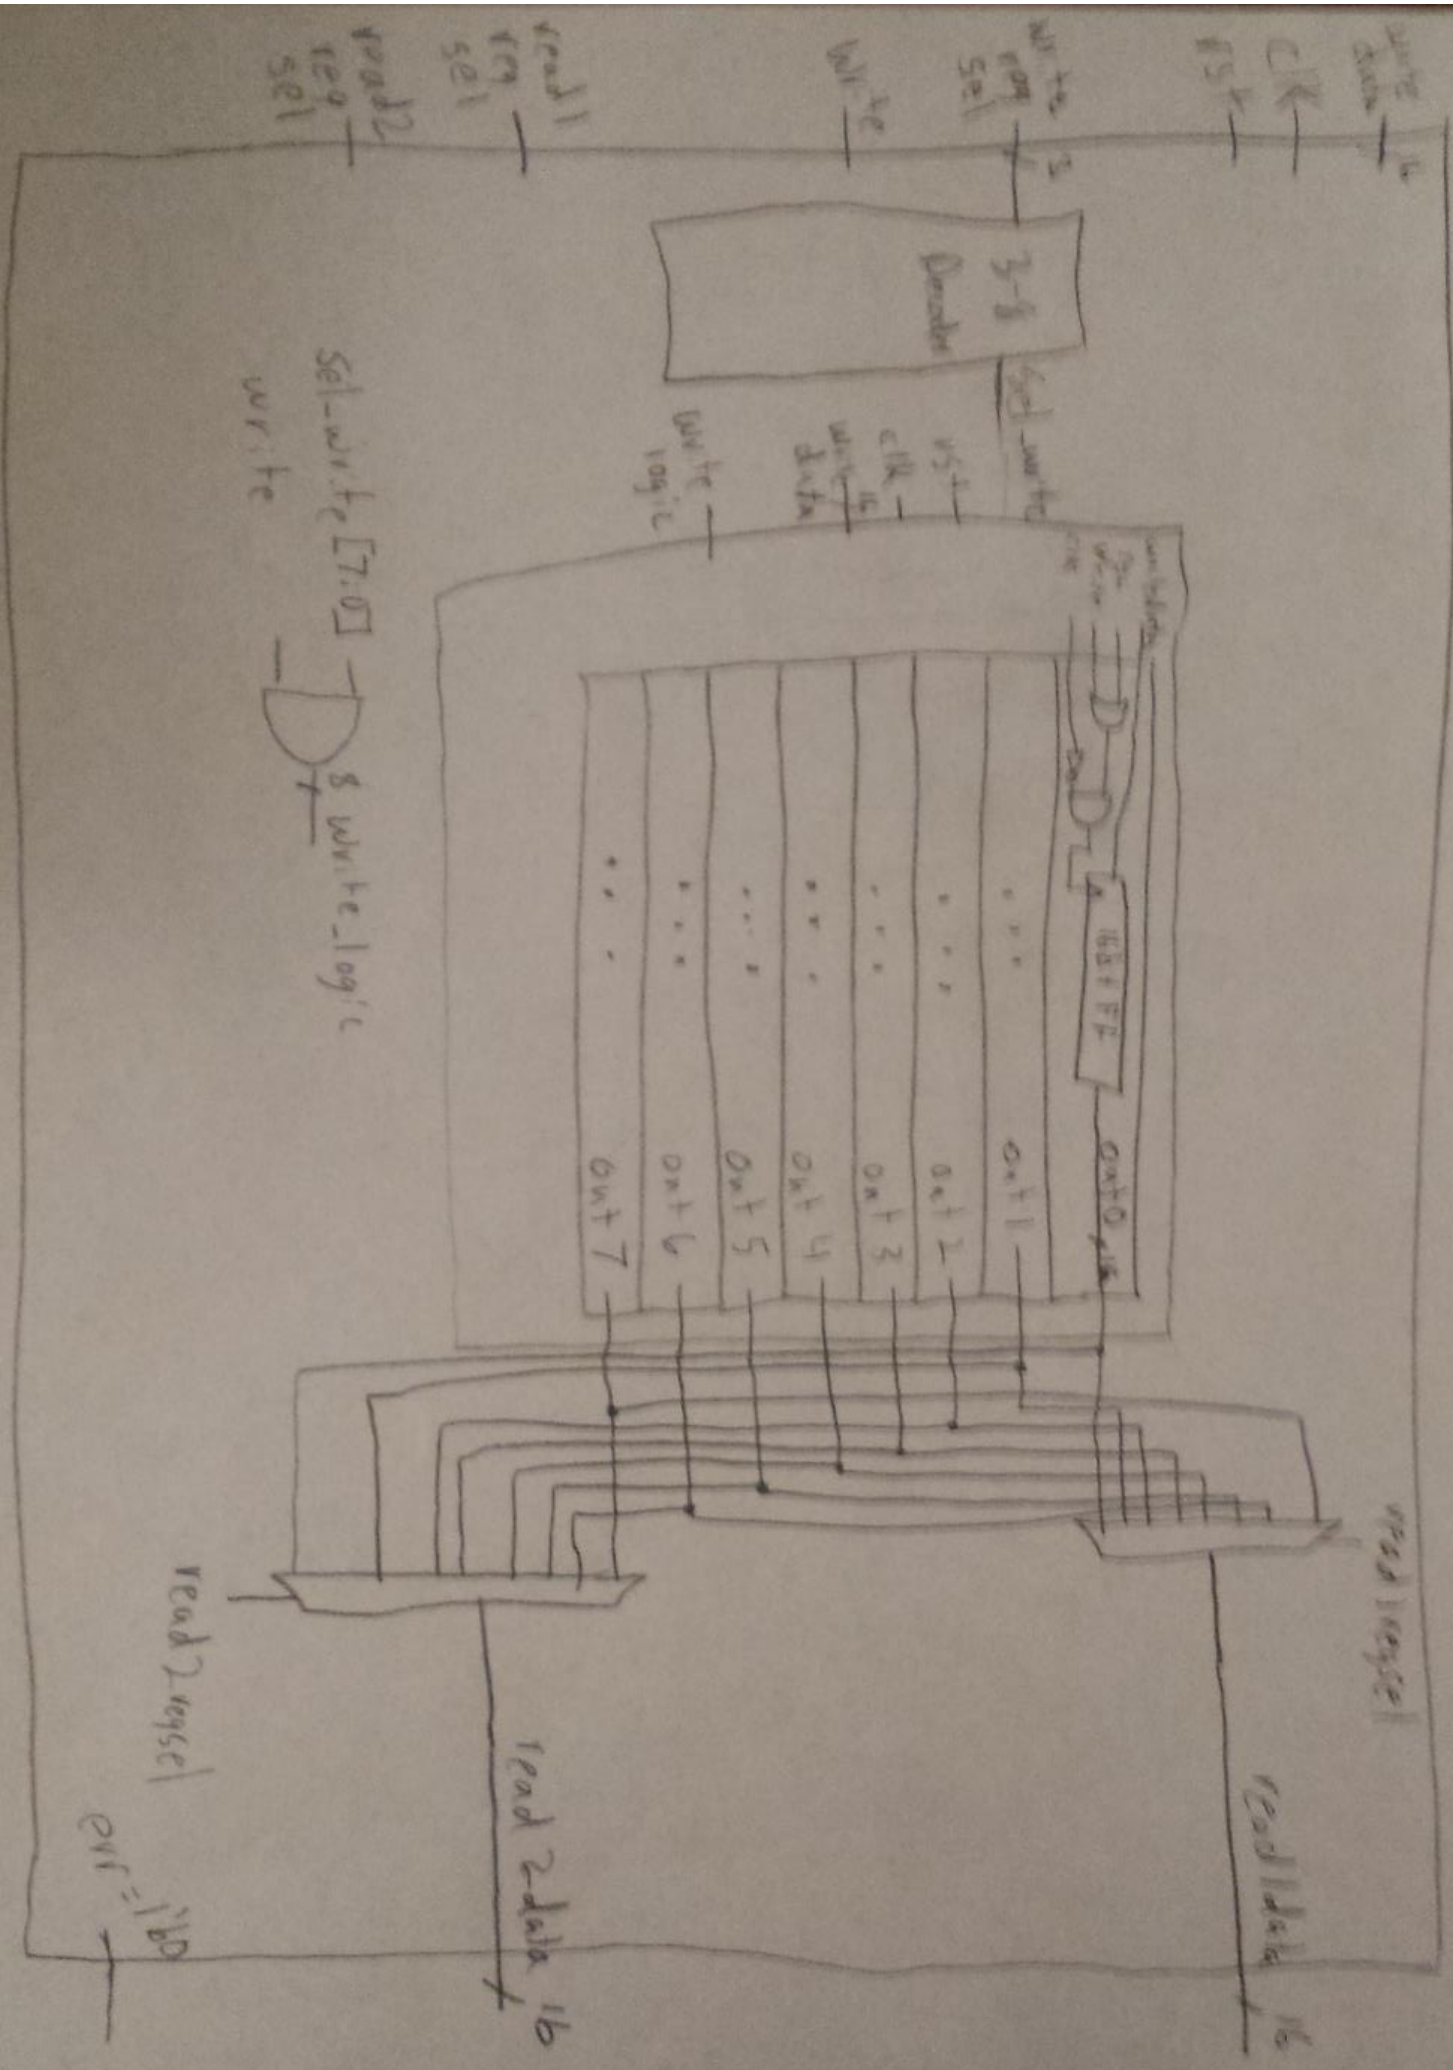 write
data
16
clk
rst
write
reg
sel
3
write
read1
reg
sel
read2
reg
sel
3-8
Decoder
sel_write
rst
clk
write
data
16
write
logic
writedata
16bit FF
out0
16
out1
out2
out3
out4
out5
out6
out7
sel_write[7:0]
write
8
write_logic
read1regsel
read1data
16
read2regsel
read2data
16
err=1'b0